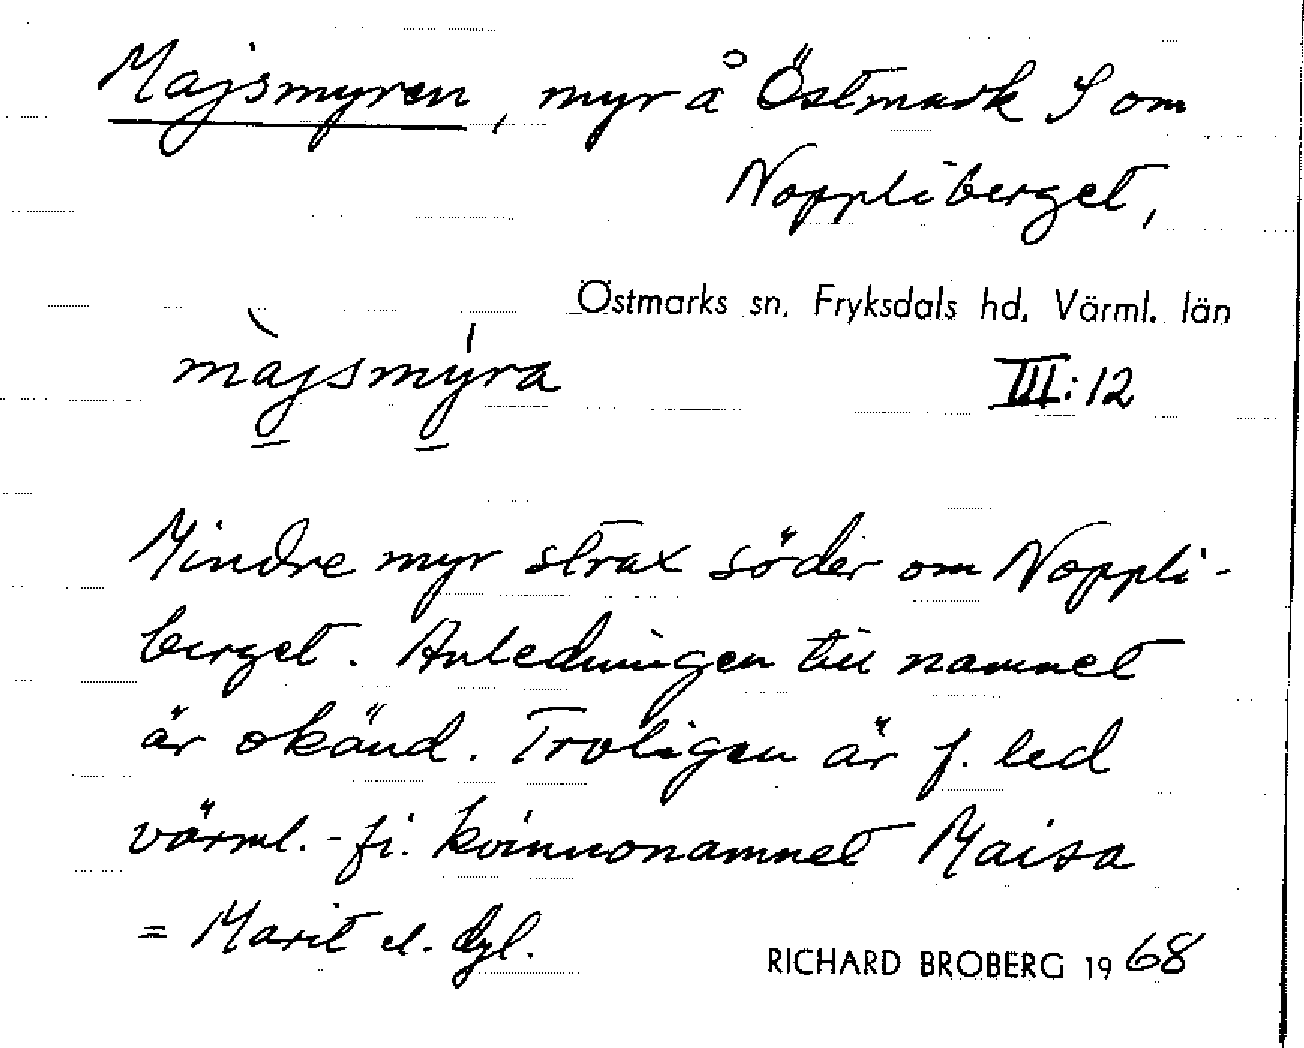 Majsmyren, myr å Östmark S om
Noppliberget,
Östmarks sn. Fryksdals hd. Värml. län
màjsmýra
III:12
Mindre myr strax söder om Noppli-
berget. Anledningen till namnet
är okänd. Troligen är f. led
värml.-fi. kvinnonamnet Maisa
= Marit el. dyl.
RICHARD BROBERG 1968